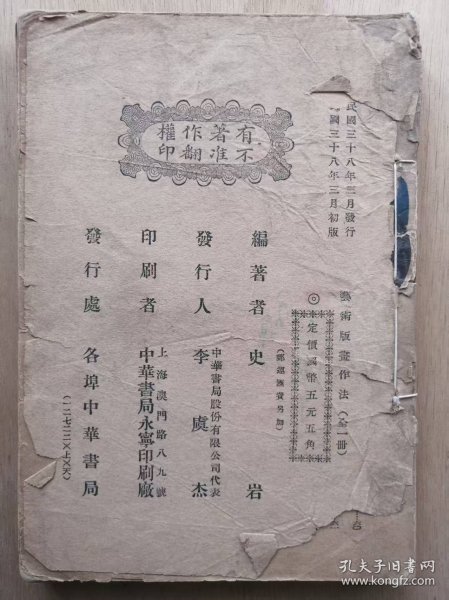 民國三十八年三月發行
國三十八年三月初版
藝術版畫作法（全一冊）
◎定價國幣五元五角
（郵運匯費另加）
有著作權
不准翻印
編著者 史岩
發行人 李虞杰
中華書局股份有限公司代表
印刷者 中華書局永寧印刷廠
上海澳門路八九號
發行處 各埠中華書局
孔夫子旧书网
kongfz.com